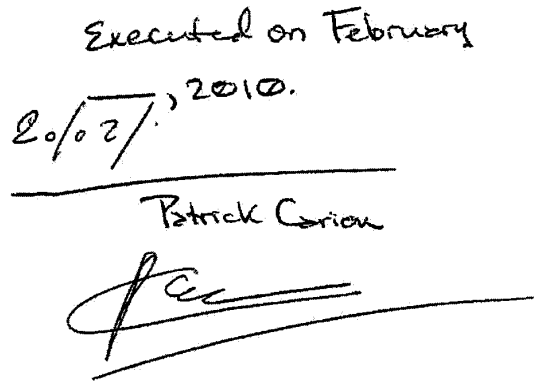 Executed on February
, 2010.
Patrick Carion